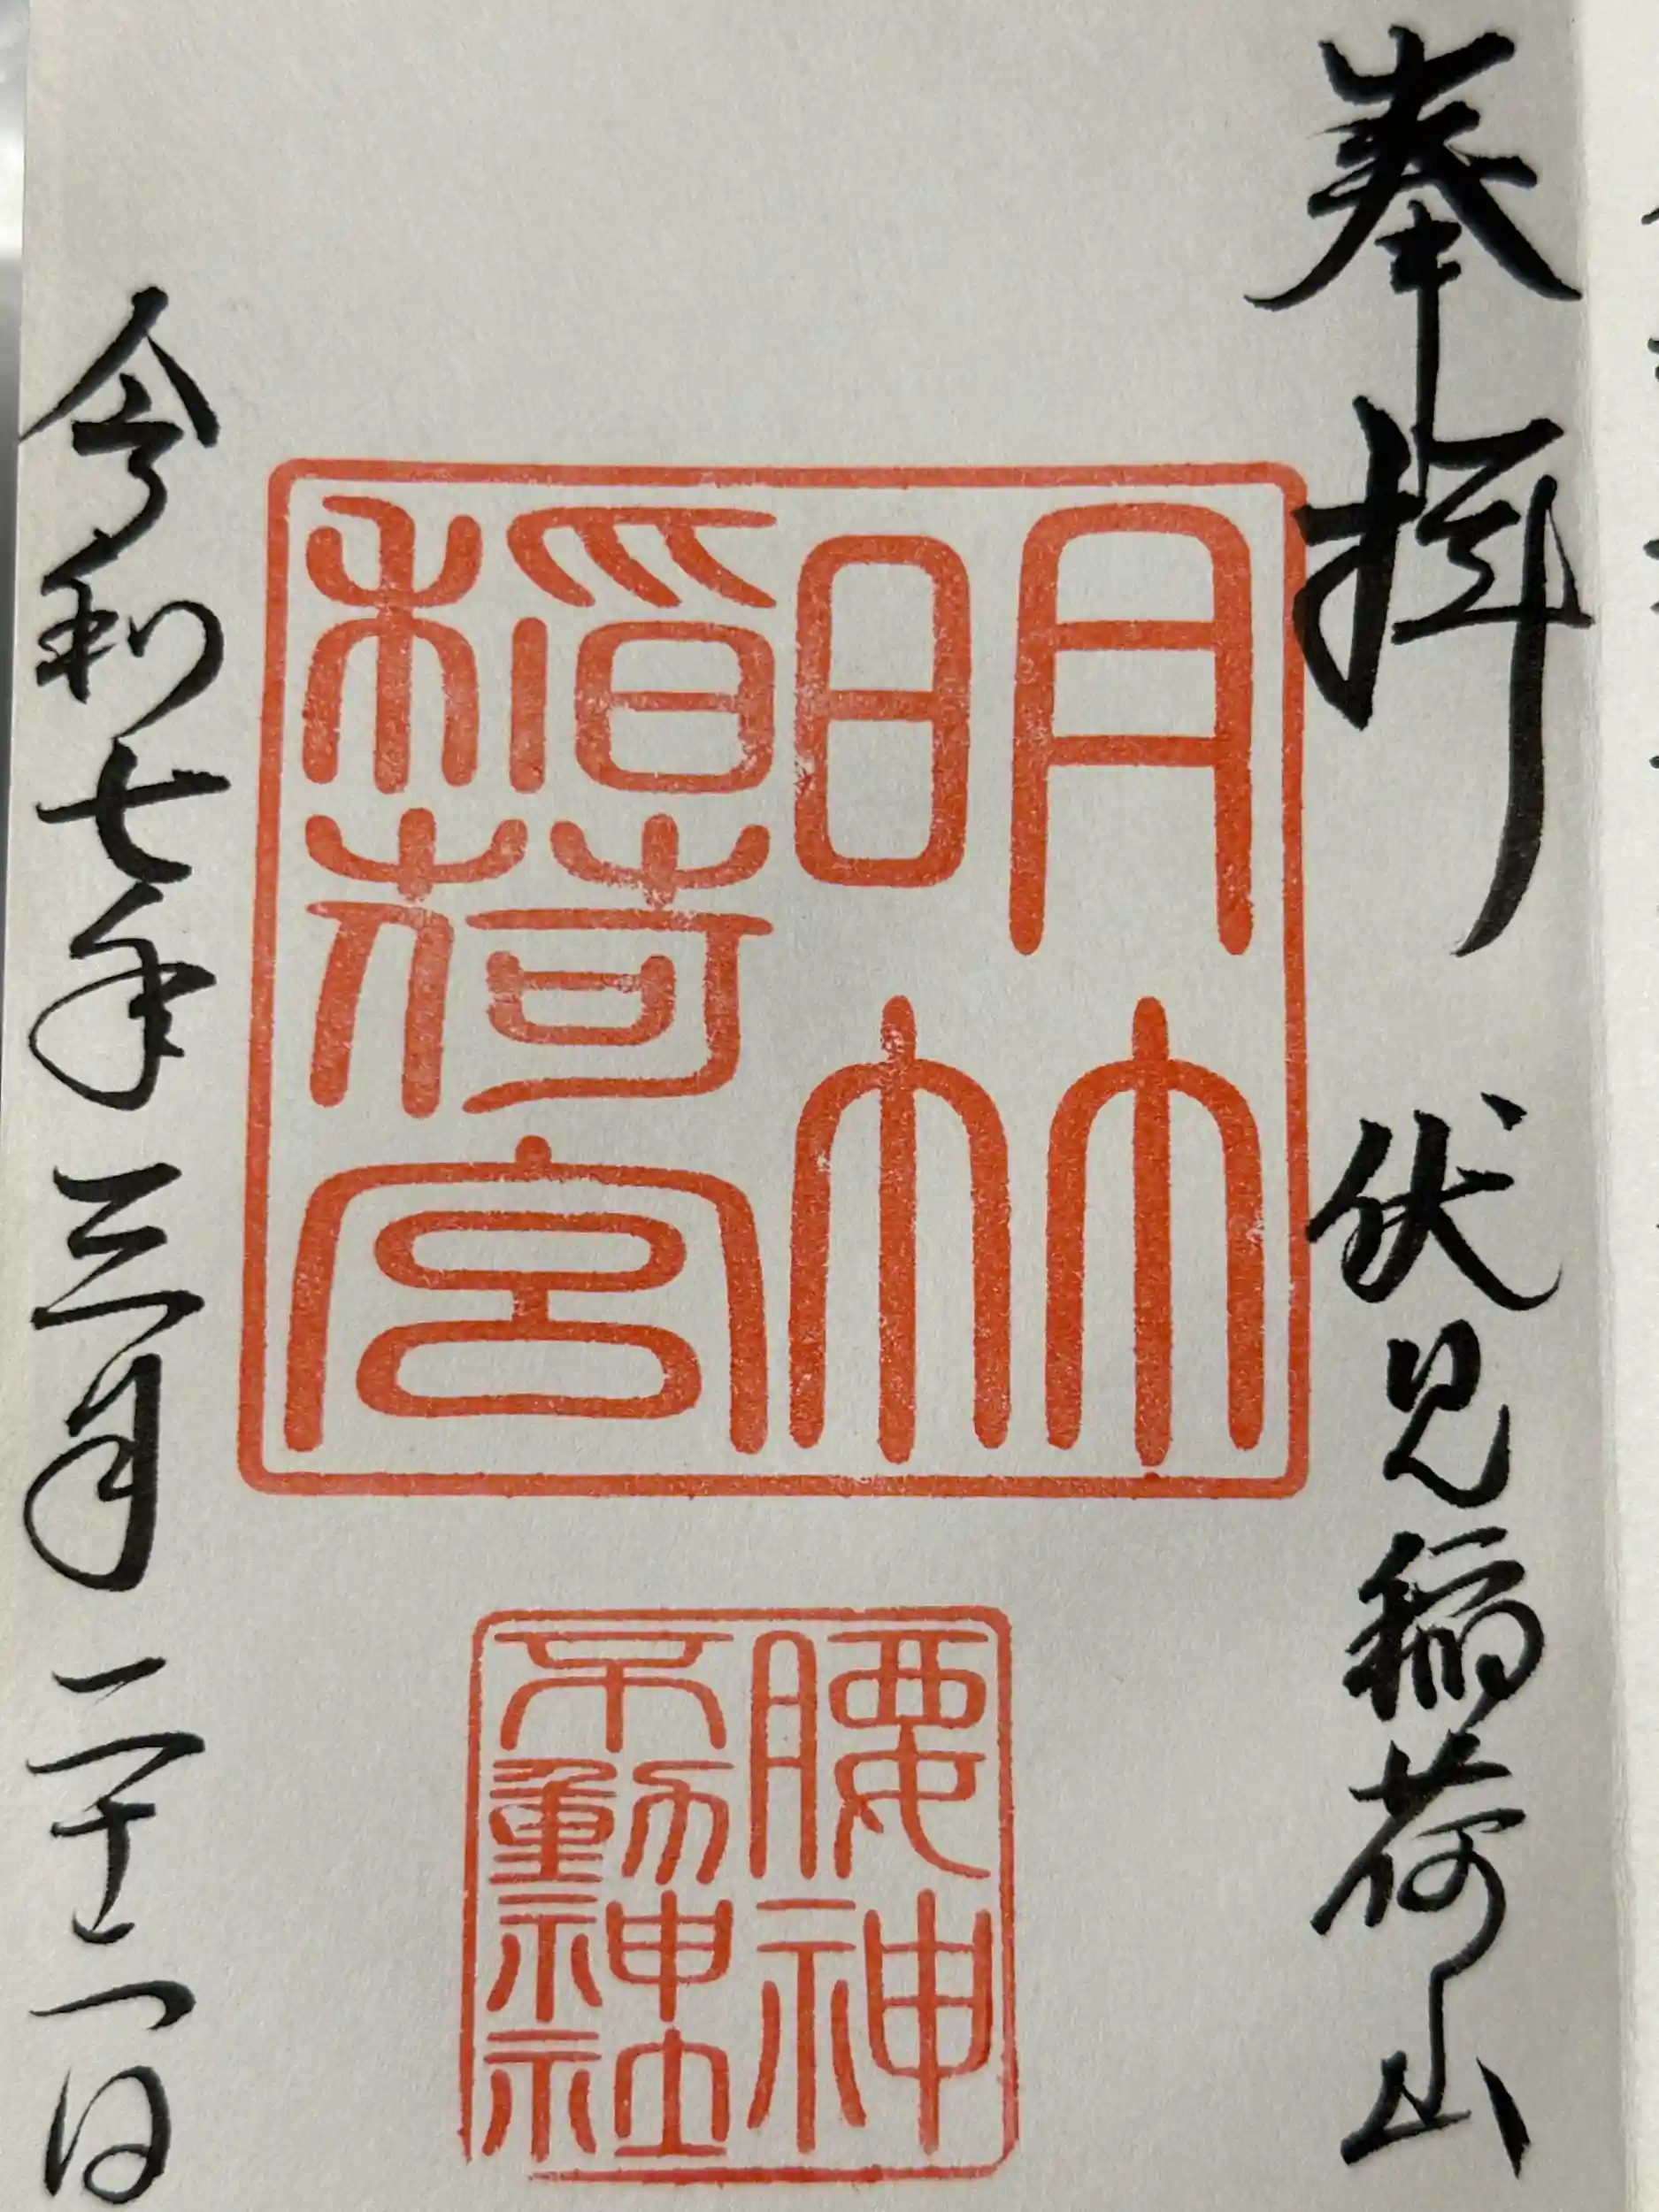 奉拝 伏見稲荷山
明竹
稲荷宮
腰神
不動神社
令和七年三月二十一日